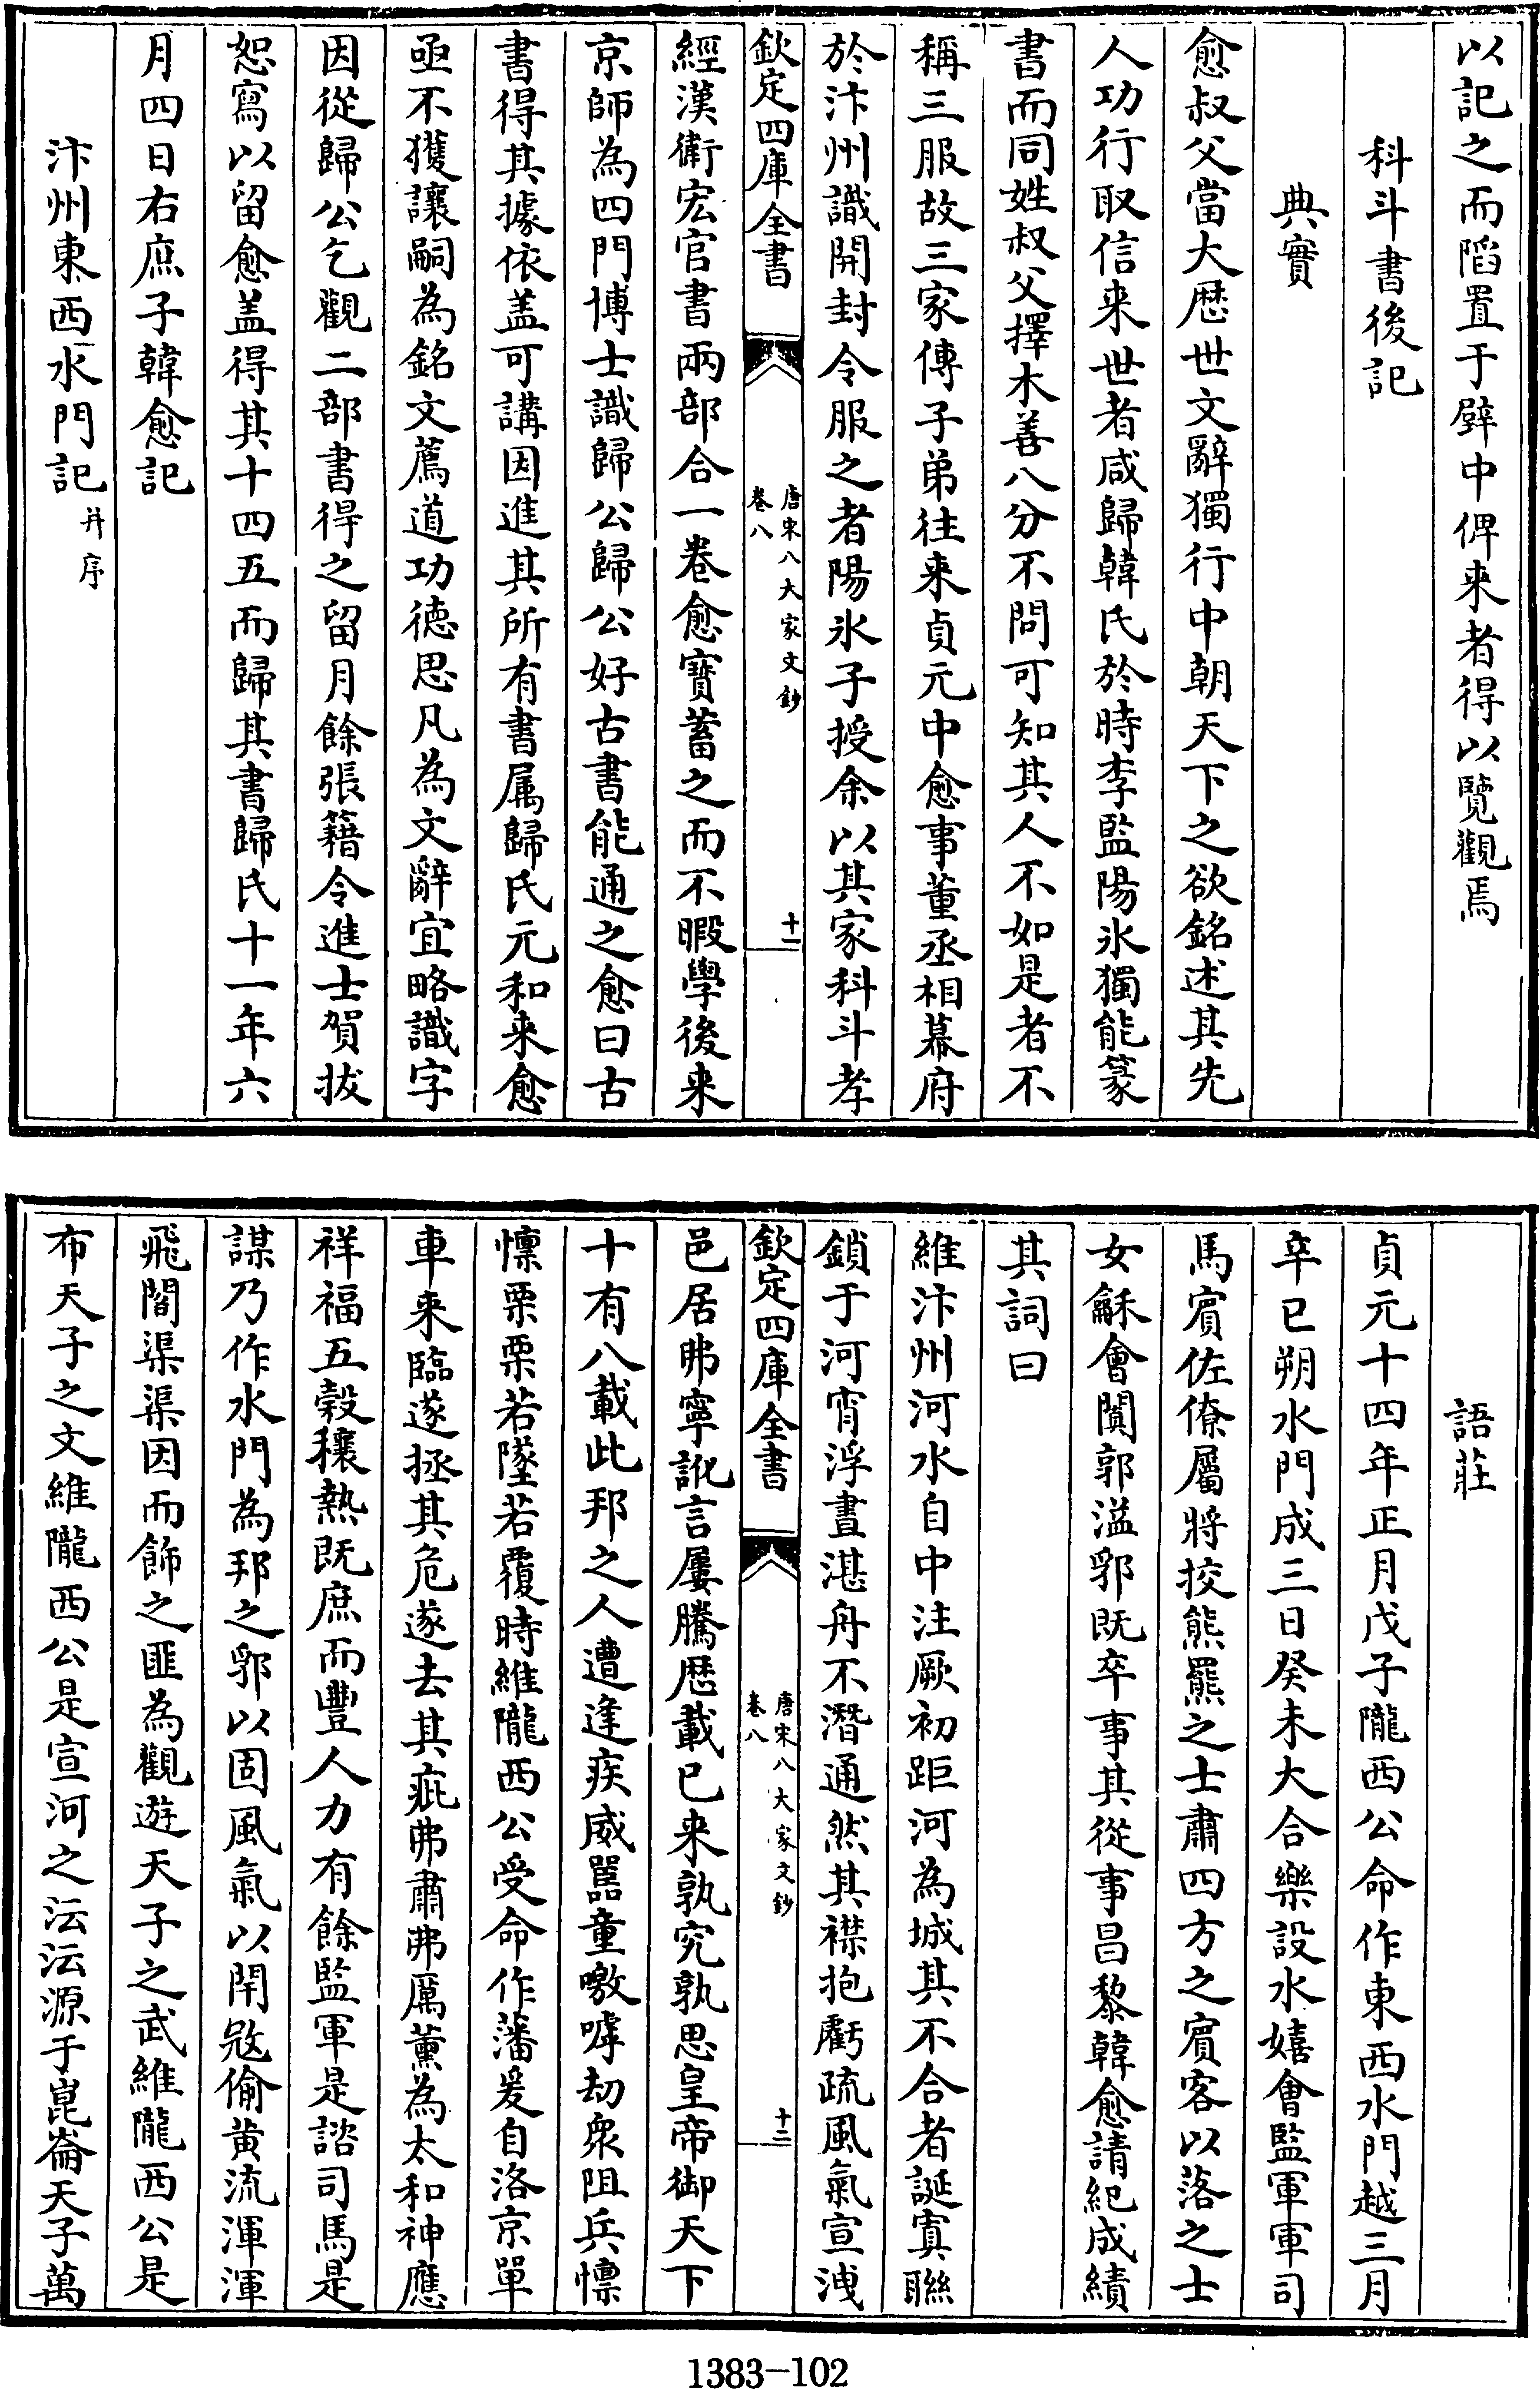 以記之而陷置于壁中俾来者得以覽觀焉
科斗書後記
典實
愈叔父當大厯世文辭獨行中朝天下之欲銘述其先
人功行取信来世者咸歸韓氏於時李監陽氷獨能篆
書而同姓叔父擇木善八分不問可知其人不如是者不
稱三服故三家傳子弟往来貞元中愈事董丞相幕府
於汴州識開封令服之者陽氷子授余以其家科斗孝
欽定四庫全書
唐宋八大家文鈔
卷八
十一
經漢衛宏官書兩部合一卷愈寳蓄之而不暇學後来
京師為四門博士識歸公歸公好古書能通之愈曰古
書得其據依盖可講因進其所有書属歸氏元和来愈
亟不獲讓嗣為銘文薦道功徳思凡為文辭宜略識字
因從歸公乞觀二部書得之留月餘張籍令進士賀拔
恕寫以留愈盖得其十四五而歸其書歸氏十一年六
月四日右庶子韓愈記
汴州東西水門記并序
語莊
貞元十四年正月戊子隴西公命作東西水門越三月
辛巳朔水門成三日癸未大合樂設水嬉會監軍軍司
馬賓佐僚屬將挍熊羆之士肅四方之賓客以落之士
女龢會闐郭溢郛既卒事其從事昌黎韓愈請紀成績
其詞曰
維汴州河水自中注厥初距河為城其不合者誕寘聯
鎖于河宵浮晝湛舟不潛通然其襟抱虧疏風氣宣洩
欽定四庫全書
唐宋八大家文鈔
卷八
十二
邑居弗寧訛言屢騰厯載已来孰究孰思皇帝御天下
十有八載此邦之人遭逢疾威嚚童噭嘑劫衆阻兵懍
懍栗栗若墜若覆時維隴西公受命作藩爰自洛京單
車来臨遂拯其危遂去其疵弗肅弗厲薰為太和神應
祥福五穀穰熟既庶而豐人力有餘監軍是諮司馬是
謀乃作水門為邦之郛以固風氣以閈㓂偷黄流渾渾
飛閣渠渠因而飾之匪為觀遊天子之武維隴西公是
布天子之文維隴西公是宣河之沄沄源于崑崙天子萬
1383-102